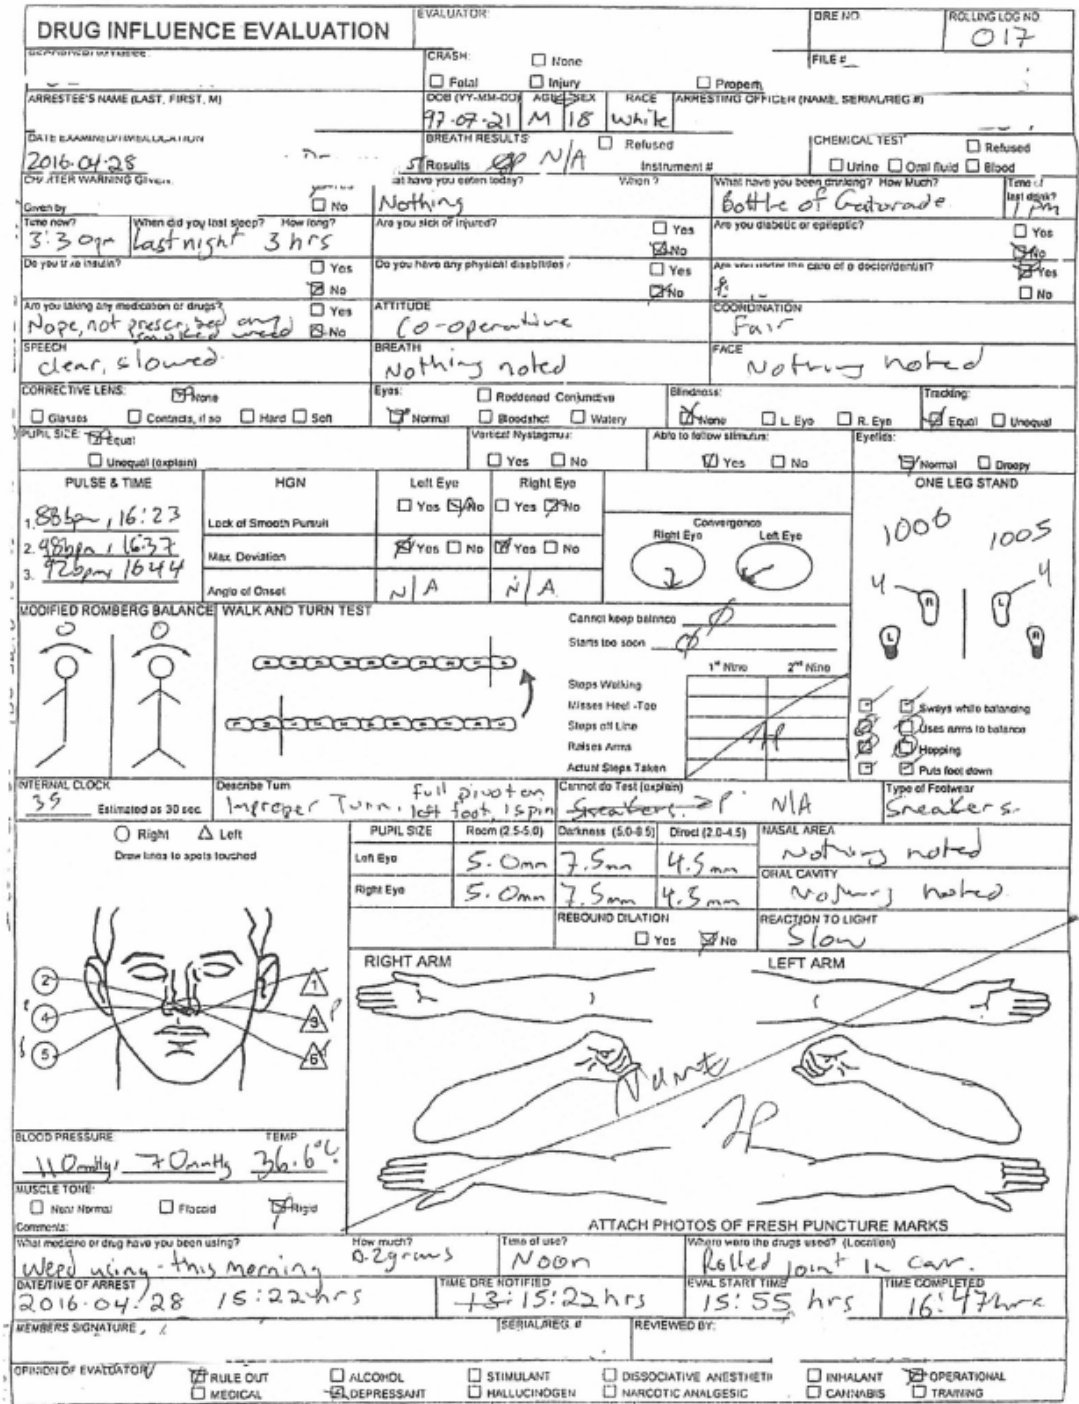 DRUG INFLUENCE EVALUATION
EVALUATOR:
DRE NO.
ROLLING LOG NO.
017
CRASH: None
Fatal Injury Property
FILE #
ARRESTEE'S NAME (LAST, FIRST, M)
DOB (YY-MM-DD) AGE SEX RACE
97-07-21 M 18 White
ARRESTING OFFICER (NAME, SERIAL/REG #)
DATE EXAMINED/TIME/LOCATION
2016-04-28
BREATH RESULTS: Refused
Results N/A Instrument #
CHEMICAL TEST Refused
Urine Oral fluid Blood
CHARTER WARNING GIVEN:
No
Given by
have you eaten today? When?
Nothing
What have you been drinking? How Much?
Bottle of Gatorade
Time of last drink?
1 pm
Time now?
3:30pm
When did you last sleep? How long?
last night 3 hrs
Are you sick or injured? Yes
No
Are you diabetic or epileptic? Yes
No
Do you take insulin? Yes
No
Do you have any physical disabilities? Yes
No
Are you under the care of a doctor/dentist? Yes
No
Are you taking any medication or drugs? Yes
Nope, not prescribed any
smoked weed No
ATTITUDE
Co-operative
COORDINATION
Fair
SPEECH
clear, slowed
BREATH
Nothing noted
FACE
Nothing noted
CORRECTIVE LENS: None
Glasses Contacts, if so Hard Soft
Eyes: Reddened Conjunctiva
Normal Bloodshot Watery
Blindness:
None L. Eye R. Eye
Tracking:
Equal Unequal
PUPIL SIZE: Equal
Unequal (explain)
Vertical Nystagmus:
Yes No
Able to follow stimulus:
Yes No
Eyelids:
Normal Droopy
PULSE & TIME
1. 88bpm, 16:23
2. 98bpm, 16:37
3. 92bpm, 1644
HGN Left Eye Right Eye
Lack of Smooth Pursuit Yes No Yes No
Max. Deviation Yes No Yes No
Angle of Onset N/A N/A
Convergence
Right Eye Left Eye
ONE LEG STAND
1006 1005
4 4
R L
L R
Sways while balancing
Uses arms to balance
Hopping
Puts foot down
MODIFIED ROMBERG BALANCE
0 0
WALK AND TURN TEST
Cannot keep balance
Starts too soon
1st Nine 2nd Nine
Stops Walking
Misses Heel -Toe
Steps off Line
Raises Arms
Actual Steps Taken
INTERNAL CLOCK
35 Estimated as 30 sec.
Describe Turn
Improper Turn. full pivot on
left foot, 1 spin
Cannot do Test (explain)
Sneakers N/A
Type of Footwear
Sneakers.
Right Left
Draw lines to spots touched
2 1
4 3
5 6
PUPIL SIZE Room (2.5-5.0) Darkness (5.0-8.5) Direct (2.0-4.5)
Left Eye 5.0mm 7.5mm 4.5mm
Right Eye 5.0mm 7.5mm 4.5mm
NASAL AREA
Nothing noted
ORAL CAVITY
Nothing noted
REBOUND DILATION
Yes No
REACTION TO LIGHT
Slow
RIGHT ARM LEFT ARM
BLOOD PRESSURE TEMP
110mmHg, 70mmHg 36.6°C
MUSCLE TONE:
Near Normal Flaccid Rigid
Comments:
ATTACH PHOTOS OF FRESH PUNCTURE MARKS
What medicine or drug have you been using?
Weed using - this morning
How much?
0.2grams
Time of use?
Noon
Where were the drugs used? (Location)
Rolled joint in car.
DATE/TIME OF ARREST
2016-04-28 15:22hrs
TIME DRE NOTIFIED
13: 15:22hrs
EVAL START TIME
15:55 hrs
TIME COMPLETED
16:47hrs
MEMBERS SIGNATURE
SERIAL/REG. #
REVIEWED BY:
OPINION OF EVALUATOR
RULE OUT ALCOHOL STIMULANT DISSOCIATIVE ANESTHETIC INHALANT OPERATIONAL
MEDICAL DEPRESSANT HALLUCINOGEN NARCOTIC ANALGESIC CANNABIS TRAINING